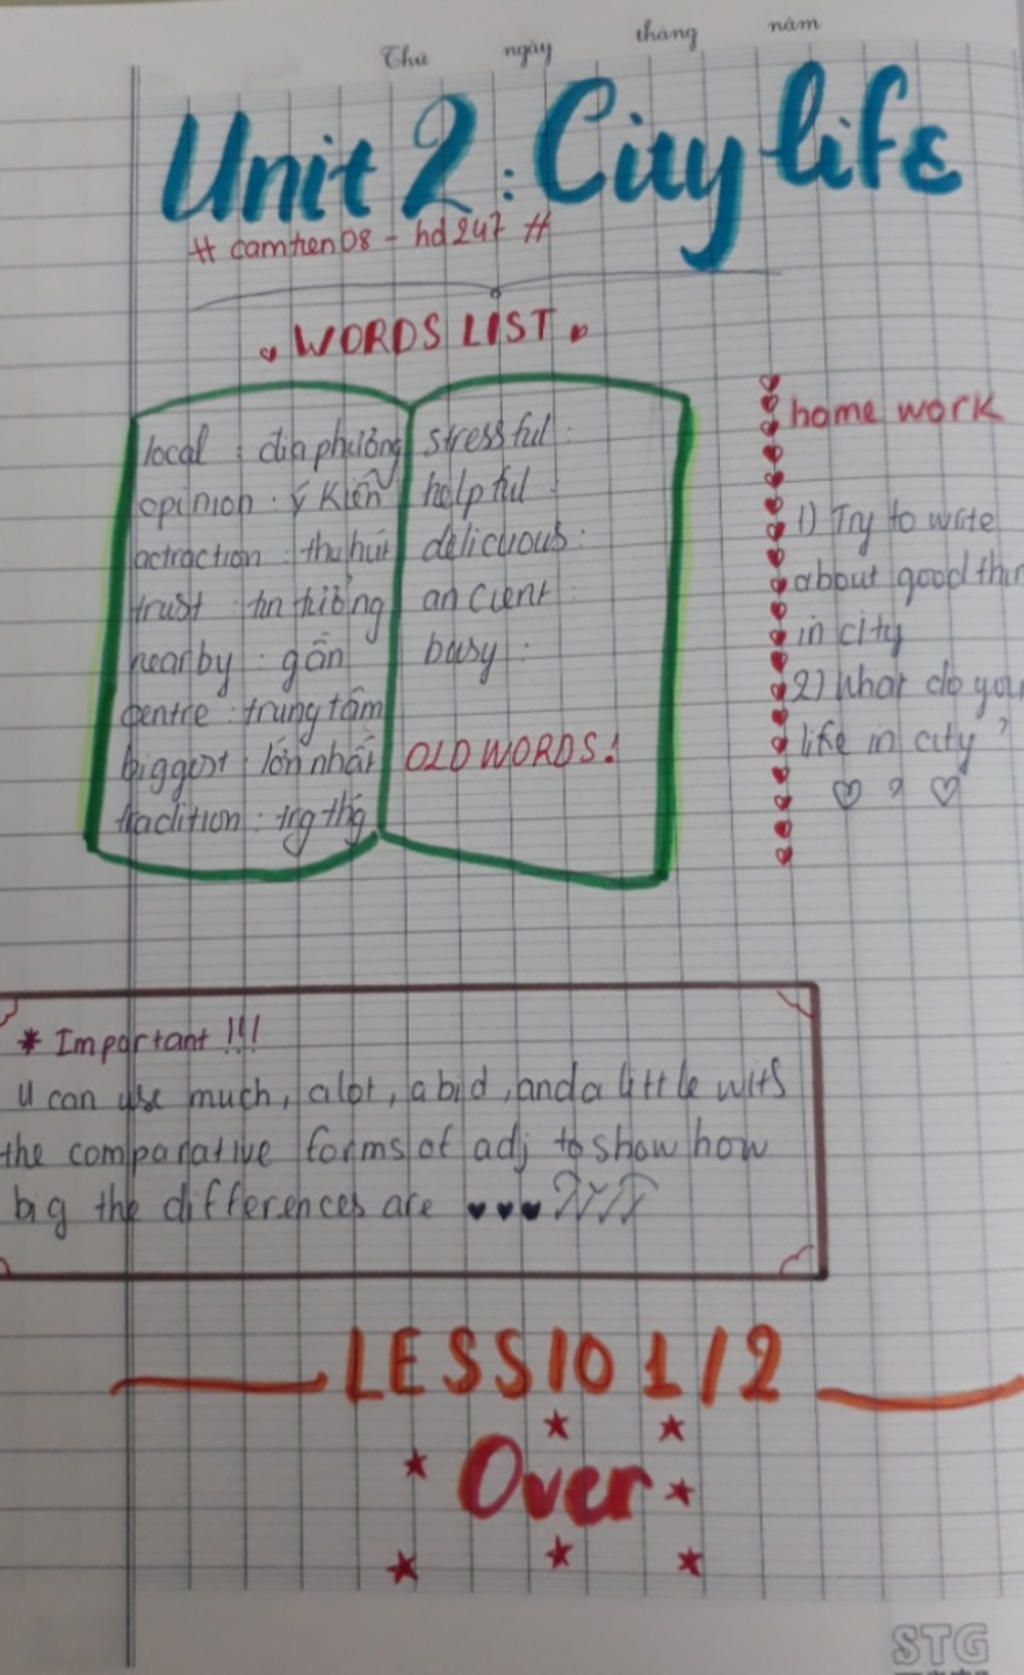 Thứ ngày tháng năm
Unit 2: City life
# camtien08 - hd247 #
WORDS LIST
local : địa phương
opinion : ý kiến
actraction : thu hút
trust : tin tưởng
nearby : gần
centre : trung tâm
biggest : lớn nhất
tradition : trg thg
stressful :
helpful :
delicuous :
ancient :
busy :
OLD WORDS!
home work
1) Try to write
about good thin
in city
2) What do you
like in city?
* Important !!!
u can use much, a lot, a bid, and a little wits
the comparative forms of adj to show how
big the differences are
LESSIO 1/2
Over
STG